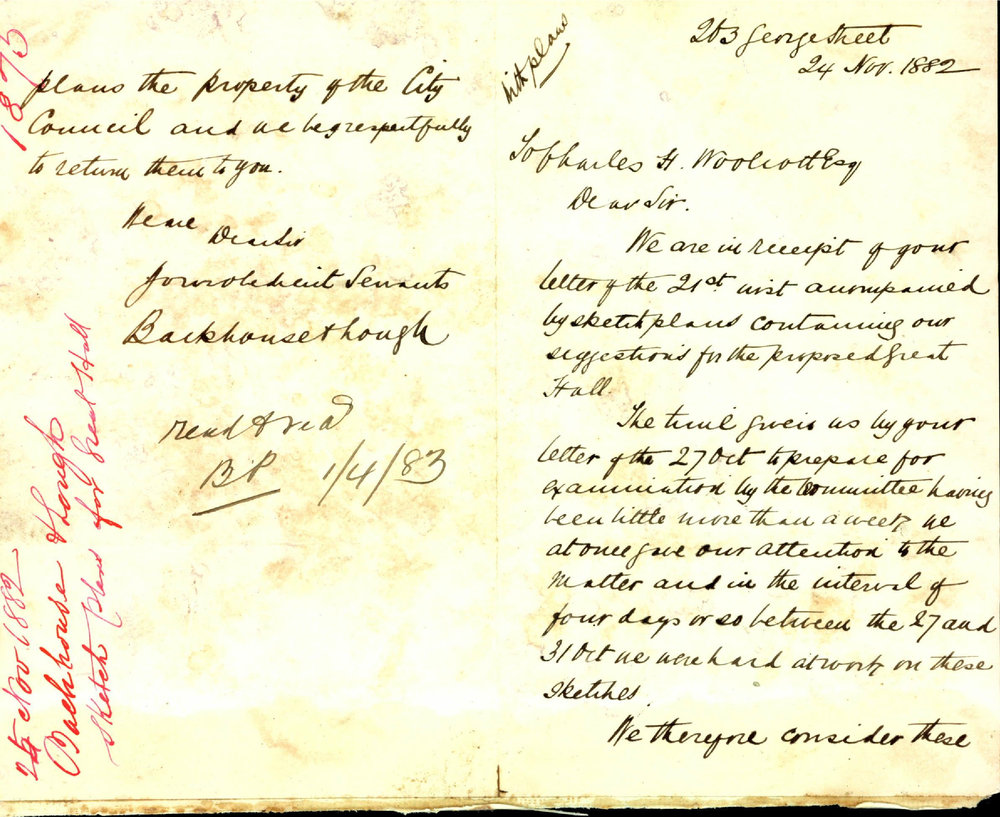 with plans
253 George Street
24 Nov. 1882
To Charles H. Woolcott Esq
Dear Sir.
We are in receipt of your
letter of the 21st inst accompanied
by sketch plans containing our
suggestions for the proposed Great
Hall.
The time given us by your
letter of the 27 Oct to prepare for
examination by the committee having
been little more than a week, we
at once gave our attention to the
matter and in the interval of
four days or so between the 27 and
31 Oct we were hard at work on these
sketches.
We therefore consider these
plans the property of the City
Council and we beg respectfully
to return them to you.
We are
Dear Sir
Your obedient Servants
Backhouse & Lough
read &
BP 1/4/83
1875
24 Nov 1882
Backhouse & Lough
Sketch plans for Great Hall